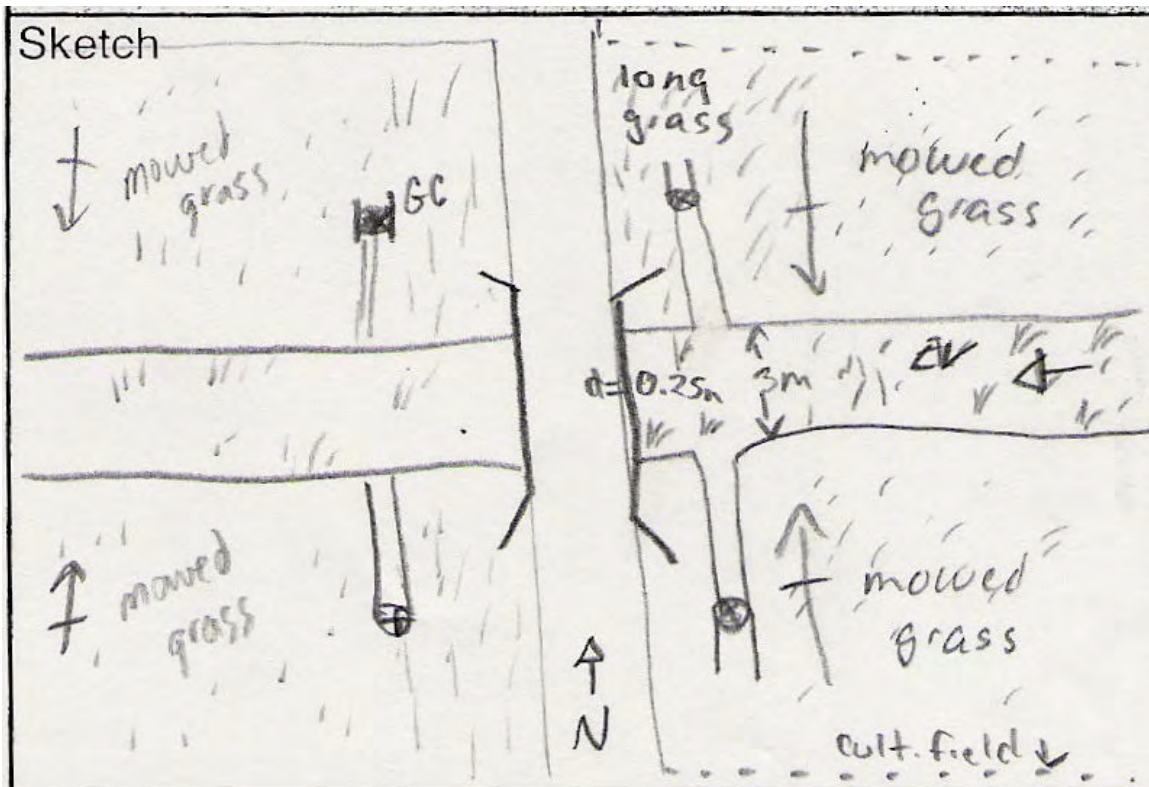 Sketch
long
grass
mowed
grass
GC
mowed
grass
d=0.25m
3m
mowed
grass
mowed
grass
N
cult. field